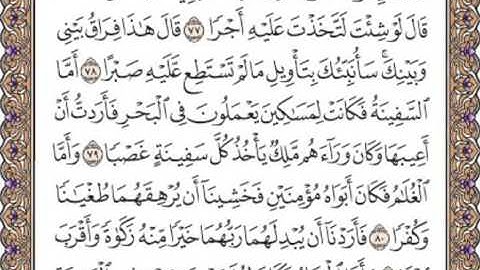 قَالَ لَوْ شِئْتَ لَتَّخَذْتَ عَلَيْهِ أَجْرًا ٧٧ قَالَ هَٰذَا فِرَاقُ بَيْنِي
وَبَيْنِكَ ۚ سَأُنَبِّئُكَ بِتَأْوِيلِ مَا لَمْ تَسْتَطِع عَّلَيْهِ صَبْرًا ٧٨ أَمَّا
السَّفِينَةُ فَكَانَتْ لِمَسَٰكِينَ يَعْمَلُونَ فِي الْبَحْرِ فَأَرَدتُّ أَنْ
أَعِيبَهَا وَكَانَ وَرَآءَهُم مَّلِكٌ يَأْخُذُ كُلَّ سَفِينَةٍ غَصْبًا ٧٩ وَأَمَّا
الْغُلَٰمُ فَكَانَ أَبَوَاهُ مُؤْمِنَيْنِ فَخَشِينَآ أَن يُرْهِقَهُمَا طُغْيَٰنًا
وَكُفْرًا ٨٠ فَأَرَدْنَآ أَن يُبْدِلَهُمَا رَبُّهُمَا خَيْرًا مِّنْهُ زَكَوٰةً وَأَقْرَبَ